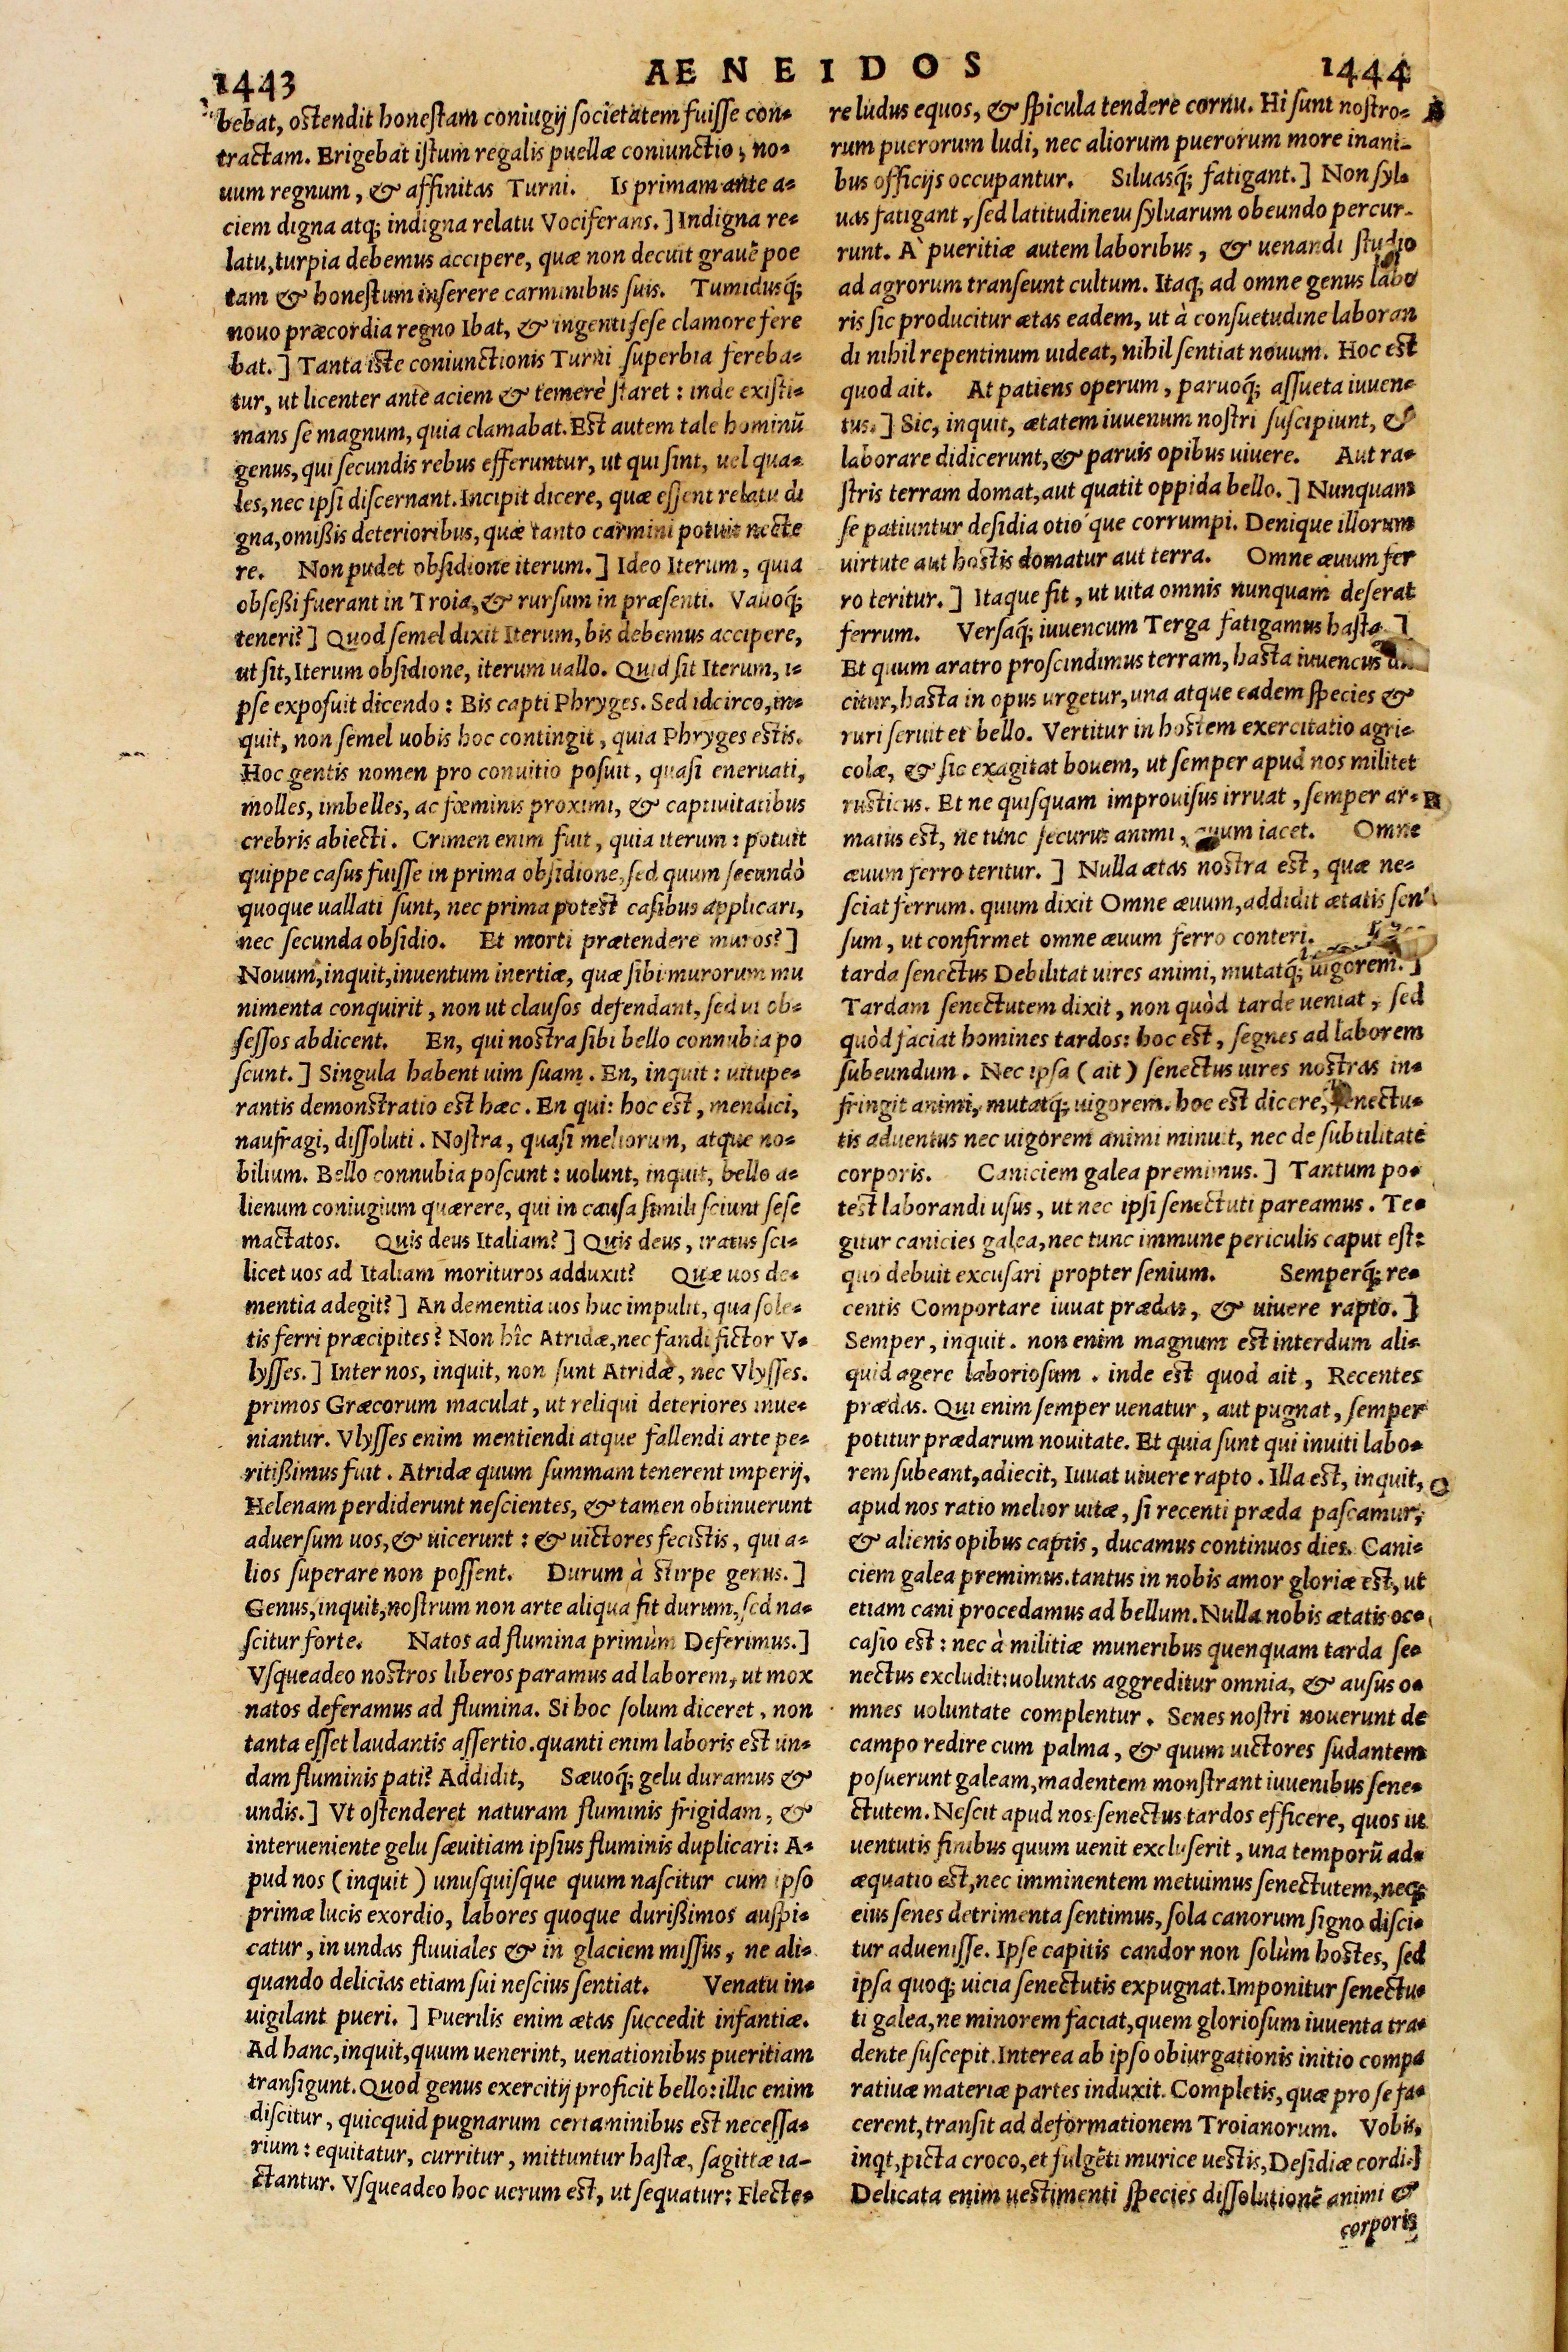 1443
AENEIDOS
1444
bebat, ostendit honestam coniugij societatem fuisse con-
tractam. Erigebat istum regalis puellæ coniunctio, no-
uum regnum, & affinitas Turni. Is primam ante a-
ciem digna atq; indigna relatu Vociferans.] Indigna re-
latu, turpia debemus accipere, quæ non decuit grauẽ poe
tam & honestum inserere carminibus suis. Tumidusq́;
nouo præcordia regno Ibat, & ingenti sese clamore fere
bat.] Tanta iste coniunctionis Turni superbia fereba-
tur, ut licenter ante aciem & temerè staret: inde existi-
mans se magnum, quia clamabat. Est autem tale hominũ
genus, qui secundis rebus efferuntur, ut qui sint, uel qua-
les, nec ipsi discernant. Incipit dicere, quæ essent relatu di
gna, omißis deterioribus, quæ tanto carmini potuit necte
re. Non pudet obsidione iterum.] Ideo Iterum, quia
obseßi fuerant in Troia, & rursum in præsenti. Vauoq́;
teneri?] Quod semel dixit Iterum, bis debemus accipere,
ut sit, Iterum obsidione, iterum uallo. Quid sit Iterum, i-
pse exposuit dicendo: Bis capti Phryges. Sed idcirco, in-
quit, non semel uobis hoc contingit, quia Phryges estis.
Hoc gentis nomen pro conuitio posuit, quasi eneruati,
molles, imbelles, ac fœminis proximi, & captiuitatibus
crebris abiecti. Crimen enim fuit, quia iterum: potuit
quippe casus fuisse in prima obsidione, sed quum secundò
quoque uallati sunt, nec prima potest casibus applicari,
nec secunda obsidio. Et morti prætendere muros?]
Nouum, inquit, inuentum inertiæ, quæ sibi murorum mu
nimenta conquirit, non ut clausos defendant, sed ut ob-
sessos abdicent. En, qui nostra sibi bello connubia po
scunt.] Singula habent uim suam. En, inquit: uitupe-
rantis demonstratio est hæc. En qui: hoc est, mendici,
naufragi, dissoluti. Nostra, quasi meliorum, atque no-
bilium. Bello connubia poscunt: uolunt, inquit, bello a-
lienum coniugium quærere, qui in causa simili sciunt sese
mactatos. Quis deus Italiam?] Quis deus, iratus sci-
licet uos ad Italiam morituros adduxit? Quæ uos de-
mentia adegit?] An dementia uos huc impulit, qua sole-
tis ferri præcipites? Non hîc Atridæ, nec fandi fictor V-
lysses.] Inter nos, inquit, non sunt Atridæ, nec Vlysses.
primos Græcorum maculat, ut reliqui deteriores inue-
niantur. Vlysses enim mentiendi atque fallendi arte pe-
ritißimus fuit. Atridæ quum summam tenerent imperij,
Helenam perdiderunt nescientes, & tamen obtinuerunt
aduersum uos, & uicerunt: & uictores fecistis, qui a-
lios superare non possent. Durum à stirpe genus.]
Genus, inquit, nostrum non arte aliqua fit durum, sed na-
scitur forte. Natos ad flumina primùm Deferimus.]
Vsqueadeo nostros liberos paramus ad laborem, ut mox
natos deferamus ad flumina. Si hoc solum diceret, non
tanta esset laudantis assertio. quanti enim laboris est un-
dam fluminis pati? Addidit, Sæuoq́; gelu duramus &
undis.] Vt ostenderet naturam fluminis frigidam, &
interueniente gelu sæuitiam ipsius fluminis duplicari: A-
pud nos (inquit) unusquisque quum nascitur cum ipso
primæ lucis exordio, labores quoque durißimos auspi-
catur, in undas fluuiales & in glaciem missus, ne ali-
quando delicias etiam sui nescius sentiat. Venatu in-
uigilant pueri.] Puerilis enim ætas succedit infantiæ.
Ad hanc, inquit, quum uenerint, uenationibus pueritiam
transigunt. Quod genus exercitij proficit bello: illic enim
discitur, quicquid pugnarum certaminibus est necessa-
rium: equitatur, curritur, mittuntur hastæ, sagittæ ia-
ctantur. Vsqueadeo hoc uerum est, ut sequatur: Flecte-
re ludus equos, & spicula tendere cornu. Hi sunt nostro-
rum puerorum ludi, nec aliorum puerorum more inani-
bus officijs occupantur. Siluasq́; fatigant.] Non syl-
uas fatigant, sed latitudinem syluarum obeundo percur-
runt. A` pueritiæ autem laboribus, & uenandi studio
ad agrorum transeunt cultum. Itaq; ad omne genus labo
ris sic producitur ætas eadem, ut à consuetudine laboran
di nihil repentinum uideat, nihil sentiat nouum. Hoc est
quod ait. At patiens operum, paruoq́; assueta iuuen-
tus.] Sic, inquit, ætatem iuuenum nostri suscipiunt, &
laborare didicerunt, & paruis opibus uiuere. Aut ra-
stris terram domat, aut quatit oppida bello.] Nunquam
se patiuntur desidia otio´que corrumpi. Denique illorum
uirtute aut hostis domatur aut terra. Omne æuum fer
ro teritur.] Itaque fit, ut uita omnis nunquam deserat
ferrum. Versaq́; iuuencum Terga fatigamus hasta.]
Et quum aratro proscindimus terram, hasta iuuencus
citur, hasta in opus urgetur, una atque eadem species &
ruri seruit et bello. Vertitur in hostem exercitatio agri-
colæ, & sic exagitat bouem, ut semper apud nos militet
rusticus. Et ne quisquam improuisus irruat, semper ar-
matus est, ne tunc securus animi, quum iacet. Omne
æuum ferro teritur.] Nulla ætas nostra est, quæ ne-
sciat ferrum. quum dixit Omne æuum, addidit ætatis sen
sum, ut confirmet omne æuum ferro conteri.
tarda senectus Debilitat uires animi, mutatq́; uigorem.]
Tardam senectutem dixit, non quòd tarde ueniat, sed
quòd faciat homines tardos: hoc est, segnes ad laborem
subeundum. Nec ipsa (ait) senectus uires nostras in-
fringit animi, mutatq́; uigorem. hoc est dicere, senectu-
tis aduentus nec uigorem animi minuit, nec de subtilitate
corporis. Caniciem galea premimus.] Tantum po-
test laborandi usus, ut nec ipsi senectuti pareamus. Te-
gitur canicies galea, nec tunc immune periculis caput est:
quo debuit excusari propter senium. Semperq́; re-
centis Comportare iuuat prædas, & uiuere rapto.]
Semper, inquit. non enim magnum est interdum ali-
quid agere laboriosum. inde est quod ait, Recentes
prædas. Qui enim semper uenatur, aut pugnat, semper
potitur prædarum nouitate. Et quia sunt qui inuiti labo-
rem subeant, adiecit, Iuuat uiuere rapto. Illa est, inquit,
apud nos ratio melior uitæ, si recenti præda pascamur,
& alienis opibus captis, ducamus continuos dies. Cani-
ciem galea premimus. tantus in nobis amor gloriæ est, ut
etiam cani procedamus ad bellum. Nulla nobis ætatis oc-
casio est: nec à militiæ muneribus quenquam tarda se-
nectus excludit: uoluntas aggreditur omnia, & ausus o-
mnes uoluntate complentur. Senes nostri nouerunt de
campo redire cum palma, & quum uictores sudantem
posuerunt galeam, madentem monstrant iuuenibus sene-
ctutem. Nescit apud nos senectus tardos efficere, quos iu
uentutis finibus quum uenit excluserit, una temporũ ad-
æquatio est, nec imminentem metuimus senectutem, neq;
eius senes detrimenta sentimus, sola canorum signo disci-
tur aduenisse. Ipse capitis candor non solùm hostes, sed
ipsa quoq; uicia senectutis expugnat. Imponitur senectu-
ti galea, ne minorem faciat, quem gloriosum iuuenta tra-
dente suscepit. Interea ab ipso obiurgationis initio compa
ratiuæ materiæ partes induxit. Completis, quæ pro se fa-
cerent, transit ad deformationem Troianorum. Vobis,
inqt, picta croco, et fulgẽti murice uestis, Desidiæ cordi.]
Delicata enim uestimenti species dissolutionẽ animi &
corporis